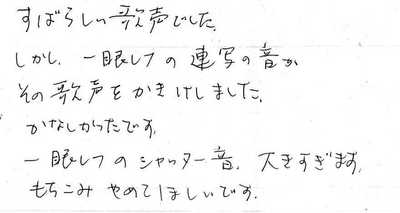 すばらしい歌声でした。
しかし、一眼レフの連写の音が
その歌声をかきけしました。
かなしかったです。
一眼レフのシャッター音、大きすぎます。
もちこみやめてほしいです。